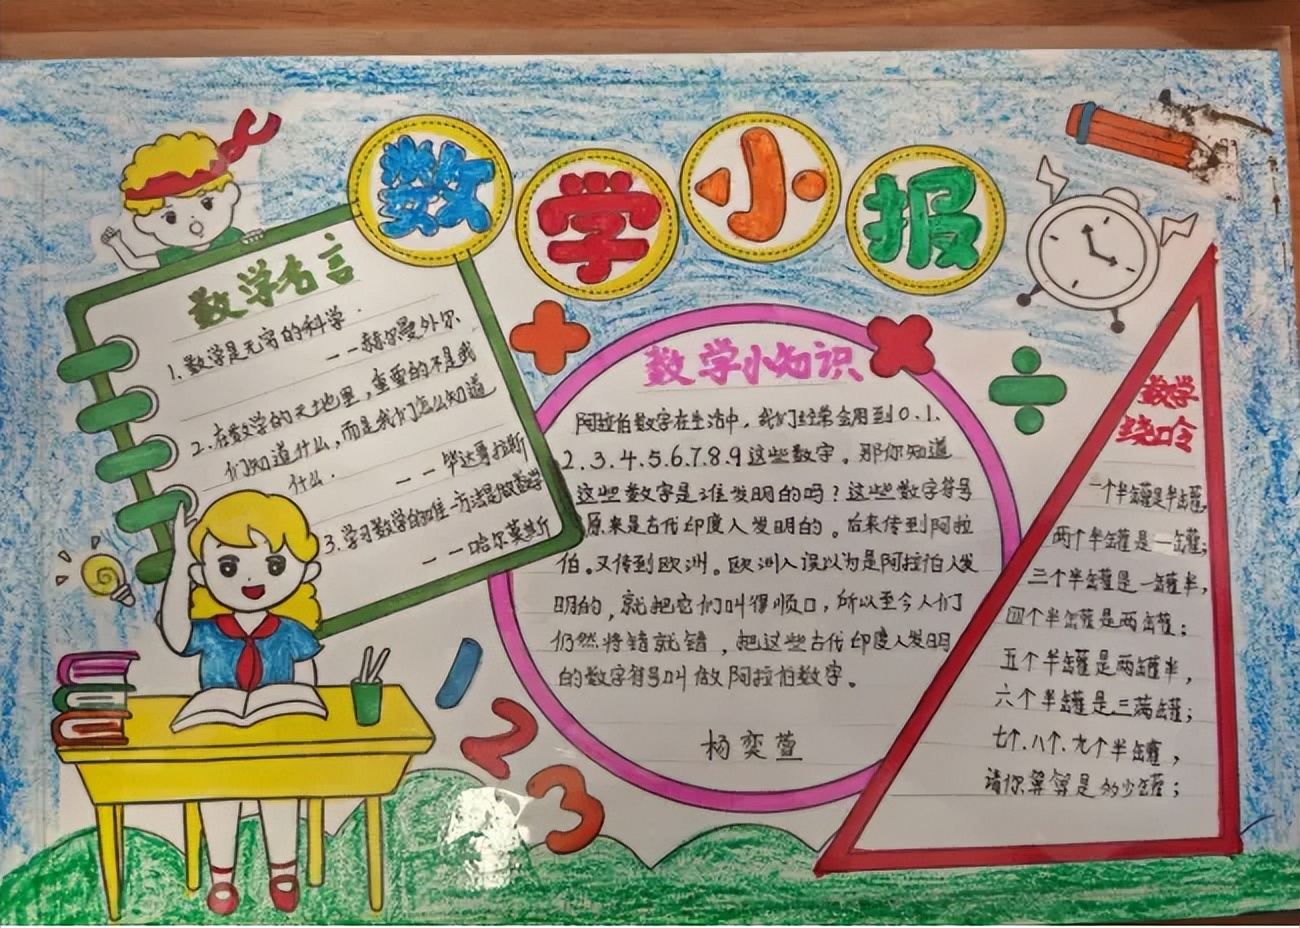 数学小报
数学名言
1.数学是无穷的科学.
——赫尔曼外尔
2.在数学的天地里，重要的不是我
们知道什么，而是我们怎么知道
什么.
——毕达哥拉斯
3.学习数学的唯一方法是做数学
——哈尔莫斯
数学小知识
阿拉伯数字在生活中，我们经常会用到0.1.
2.3.4.5.6.7.8.9这些数字。那你知道
这些数字是谁发明的吗？这些数字符号
原来是古代印度人发明的。后来传到阿拉
伯。又传到欧洲。欧洲人误以为是阿拉伯人发
明的，就把它们叫得顺口，所以至今人们
仍然将错就错，把这些古代印度人发明
的数字符号叫做阿拉伯数字。
杨奕萱
数学
绕口令
一个半罐是半罐，
两个半罐是一罐；
三个半罐是一罐半，
四个半罐是两罐；
五个半罐是两罐半，
六个半罐是三满罐；
七个.八个.九个半罐，
请你算算是多少罐；
1
2
3